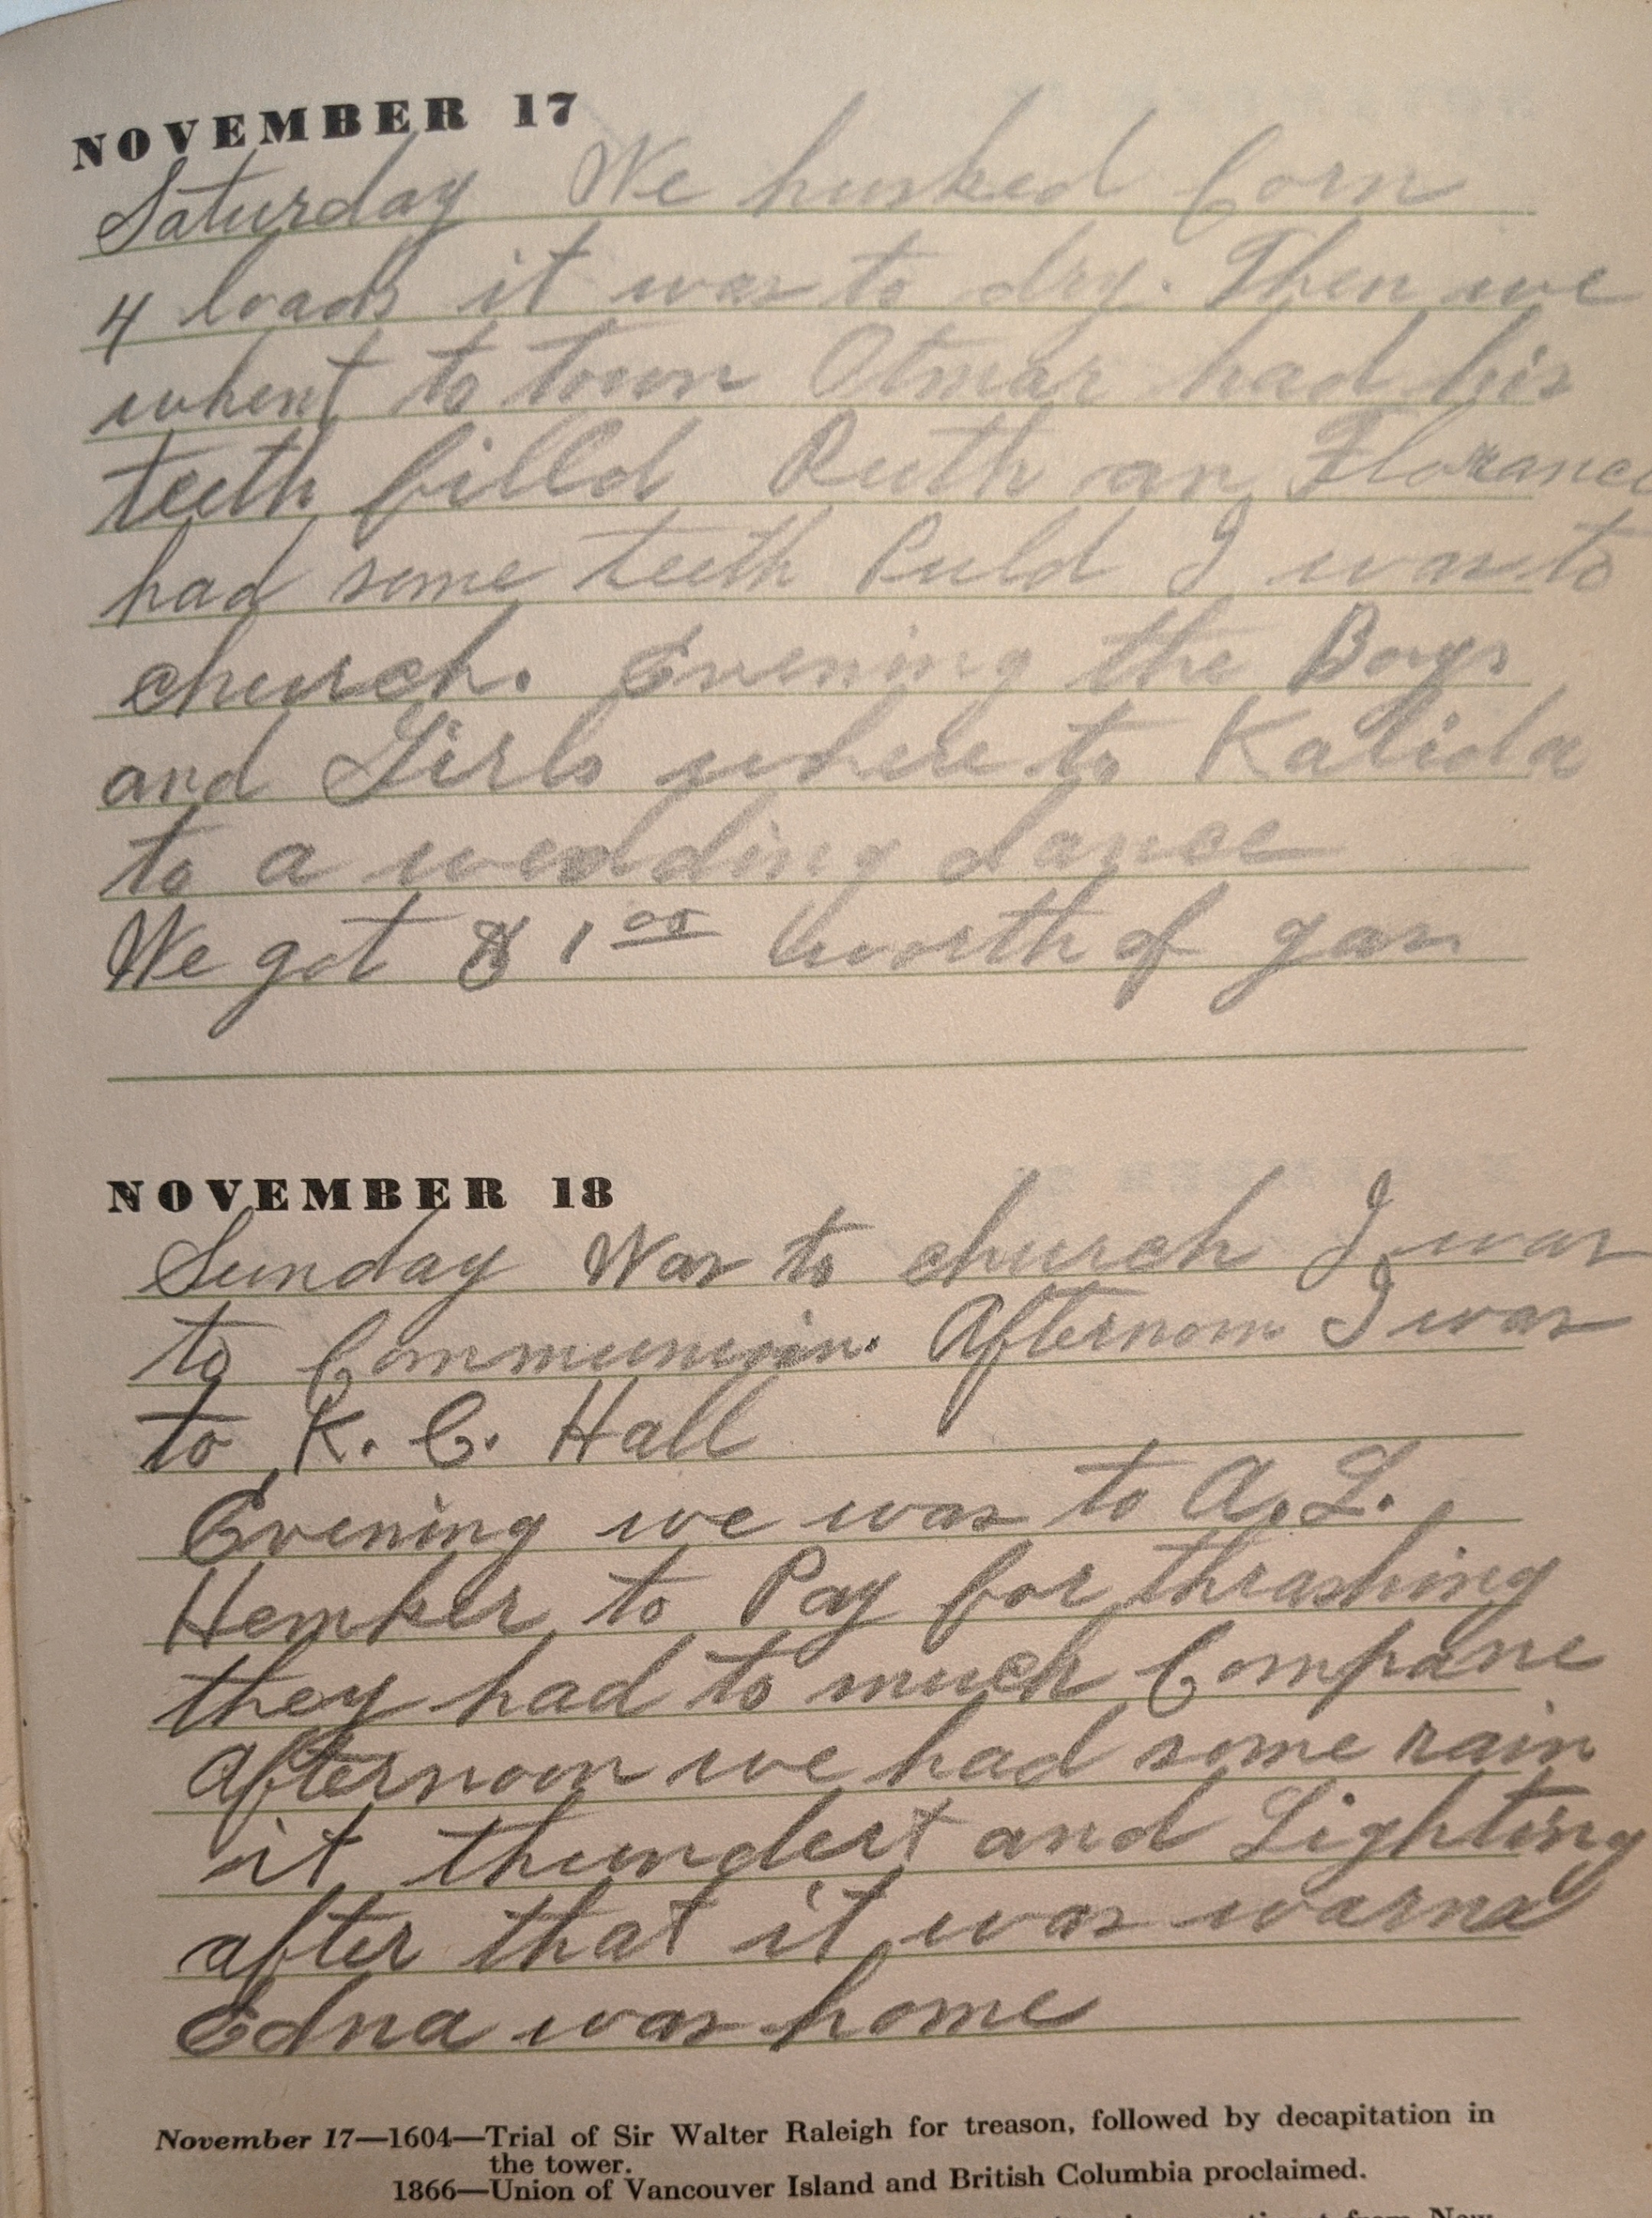 NOVEMBER 17
Saturday We husked Corn
4 loads it was to dry. Then we
whent to town Otmar had his
teeth filld Ruth an Florance
had some teeth Puld I was to
church. Evening the Boys
and Girls where to Kalida
to a wedding dance
We got $ 1 00 worth of gas
NOVEMBER 18
Sunday Was to church I was
to Communion. Afternoon I was
to K. C. Hall
Evening we was to A. L.
Hemker to Pay for thrashing
they had to much Compane
Afternoon we had some rain
it thundert and Lighting
after that it was warm
Edna was home
November 17—1604—Trial of Sir Walter Raleigh for treason, followed by decapitation in
the tower.
1866—Union of Vancouver Island and British Columbia proclaimed.
from New